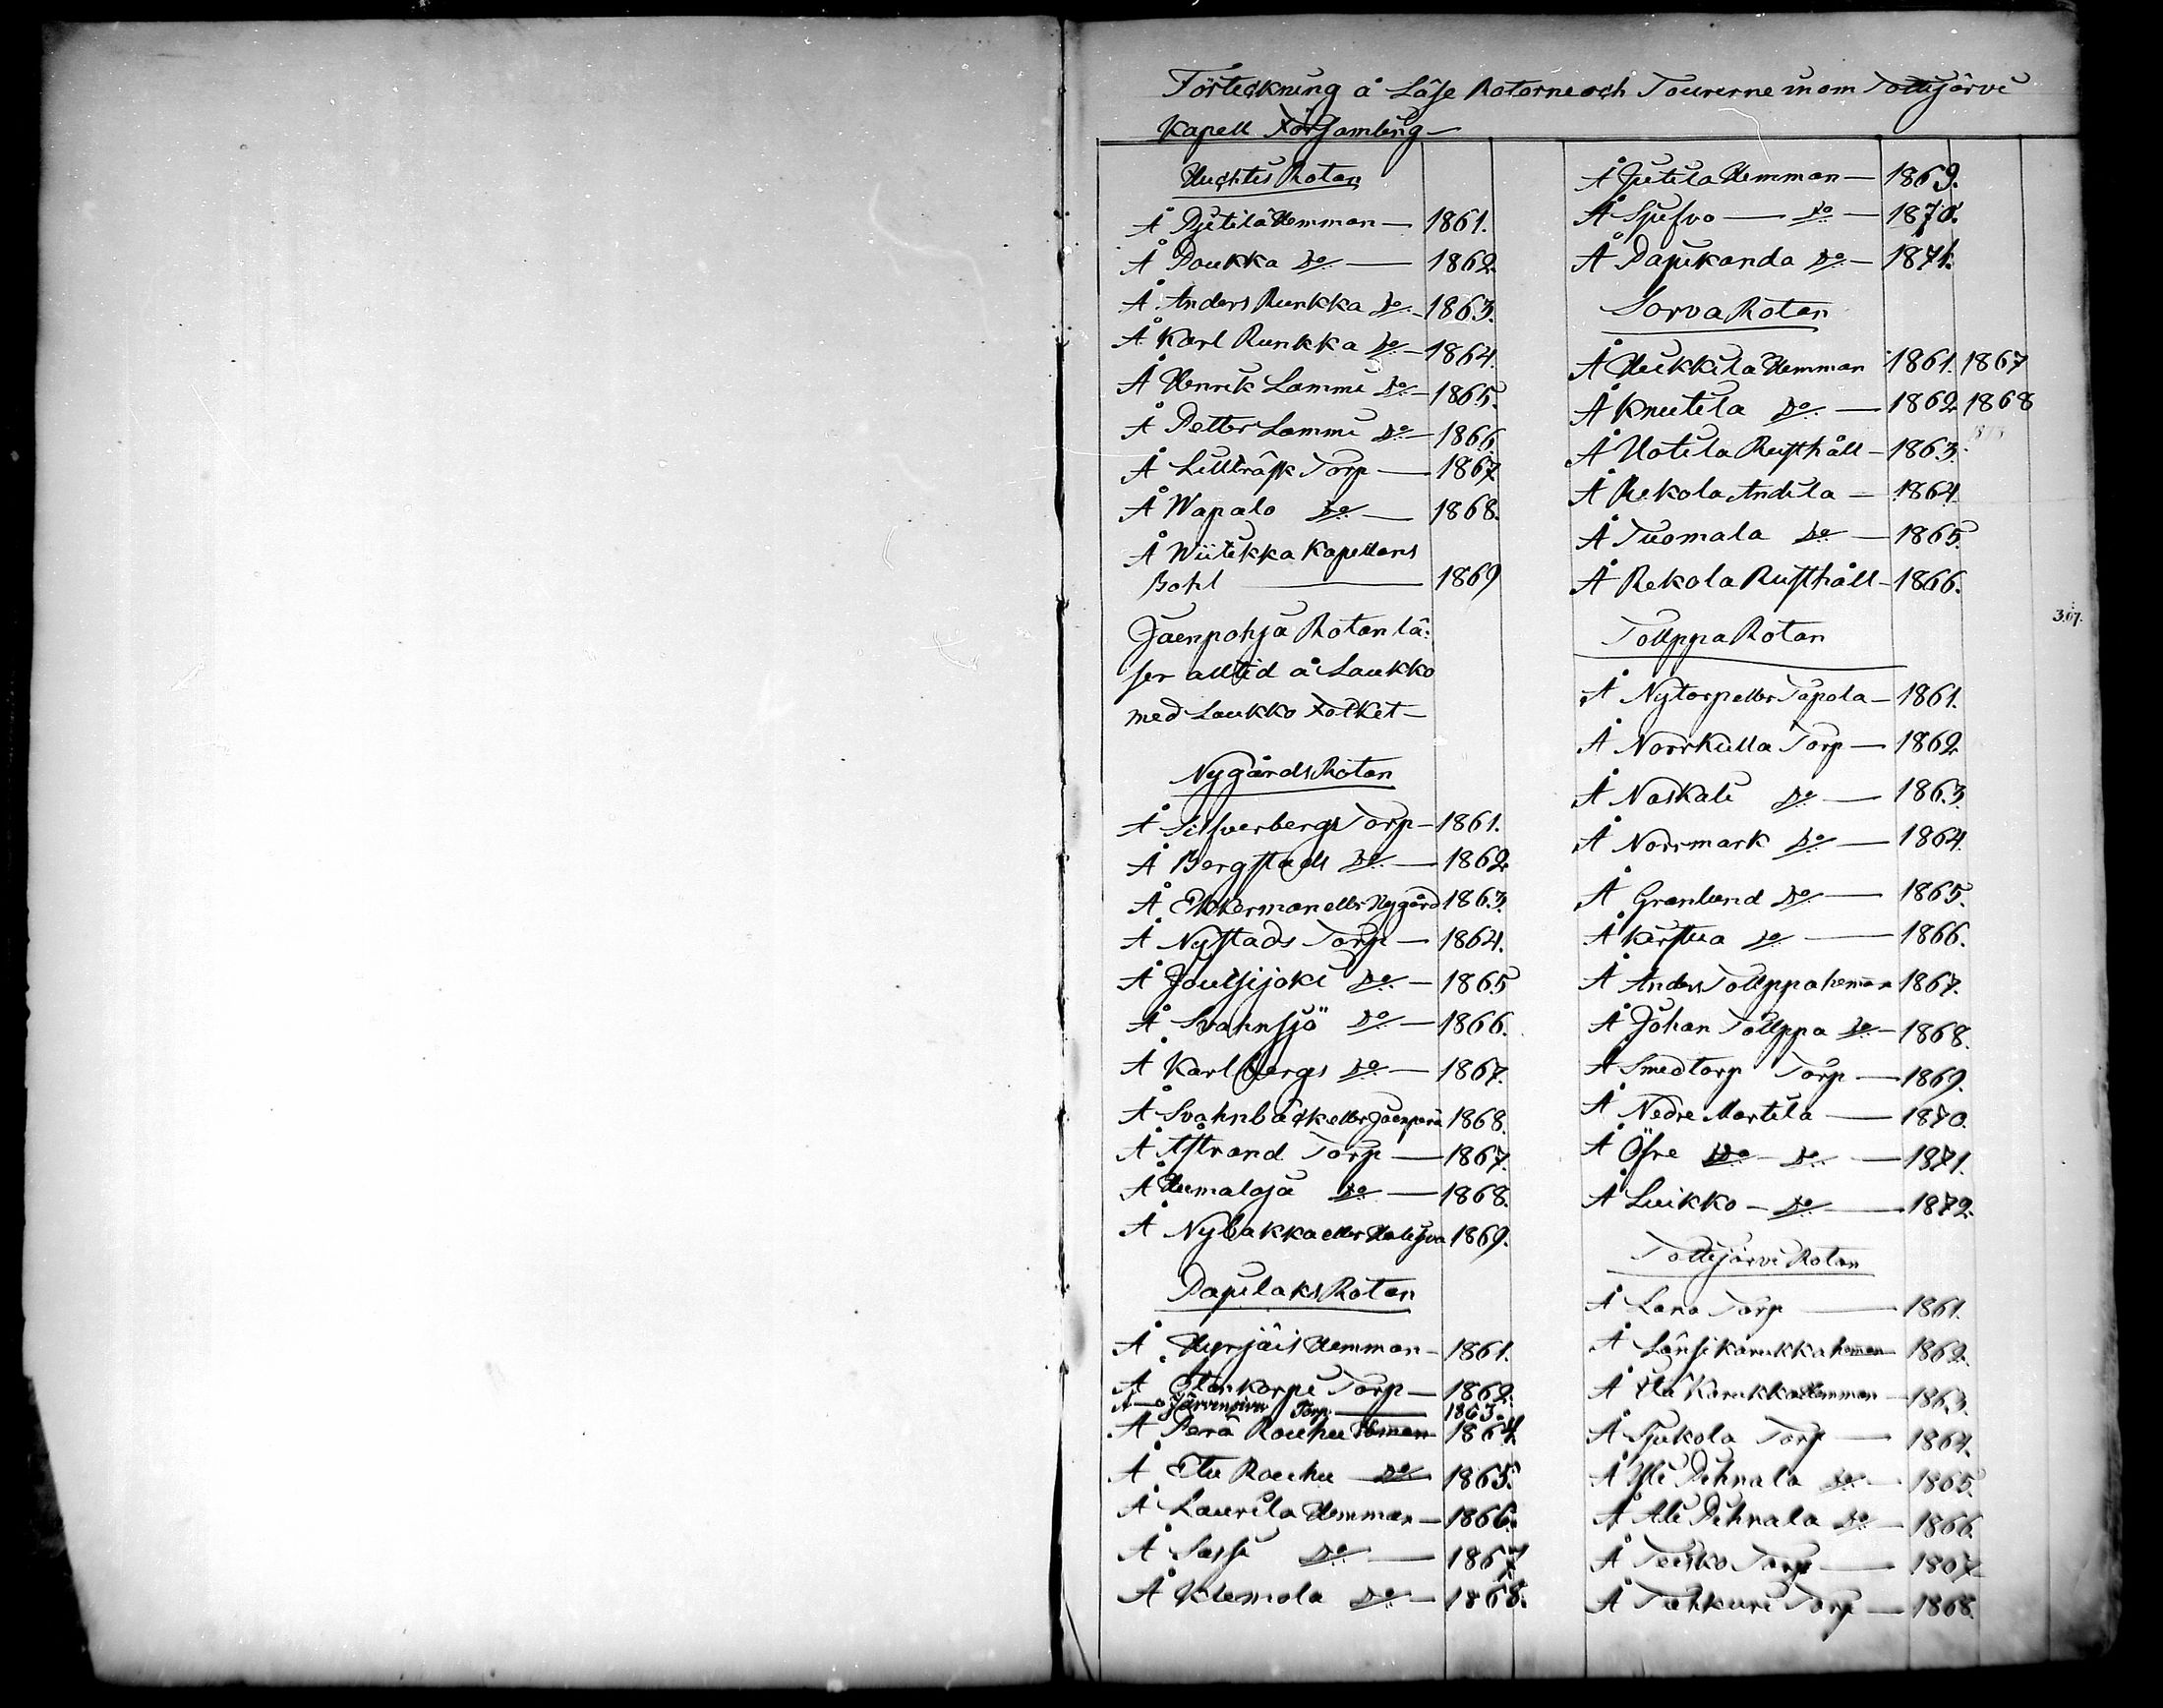 Förteckning å Läse Rotorne och Tourerne inom Tottijärvi
Kapell Församling
Huchtis Rotan
Å Pjetilä Hemman — 1861.
Å Paukka Do — 1862.
Å Anders Runkka Do — 1863.
Å Karl Runkka Do — 1864.
Å Henrik Lammi Do — 1865.
Å Petter Lammi Do — 1866.
Å Lillträsk Torp — 1867
Å Wapalo Do — 1868.
Å Wiitikka Kapellans
Bohl — 1869
Jaenpohja Rotan lä:
ser alltid å Laukko
med Laukko Folket —
Nygårds Rotan
Å Silfverbergs Torp — 1861.
Å Bergstads Do — 1862
Å Ekkerman eller Nygård 1863.
Å Nystads Torp — 1864.
Å Joutsijoki Do — 1865
Å Svahnsjö Do — 1866.
Å Karlbergs Do — 1867.
Å Svahnbäck eller Jaenperä 1868.
Å Åstrand Torp — 1867.
Å Humaloja Do — 1868.
Å Nybakka eller 1869.
Pajulaks Rotan
Å Hyrjäis Hemman — 1861.
Å Torp — 1862.
Å Järvensivu Torp — 1863.
Å Perä Rouhu Heman 1864.
Å Etu Rouhu Do 1865.
Å Laurila Hemman — 1866.
Å Sassi Do — 1867
Å Klemola Do — 1868.
Å Jutila Hemman — 1869.
Å Do — 1870.
Å Pajukanda Do — 1871.
Sorva Rotan
Å Heikkilä Hemman 1861. 1867
Å Knutila Do — 1862 1868
Å Uotila Rusthåll — 1863.
Å Rekola Andila — 1864
Å Tuomala Do — 1865.
Å Rekola Rusthåll — 1866.
307.
Tolppa Rotan
Å Nytorp eller Tapola — 1861.
Å Norrkulla Torp — 1862
Å Naskali Do — 1863.
Å Norrmark Do — 1864.
Å Granlund Do — 1865.
Å Do — 1866.
Å Anders Tolppa heman 1867.
Å Johan Tolppa Do — 1868.
Å Smedtorp Torp — 1869.
Å Nedre Martila — 1870.
Å Öfre Do — Do — 1871.
Å Luikko — Do — 1872.
Tottijärvi Rotan
Å Lana Torp — 1861.
Å Länsi Karukka heman 1862.
Å Karukka Hemman — 1863.
Å Torp — 1864.
Å Yli Pihnala Do — 1865.
Å Ali Pihnala Do — 1866.
Å Teisko Torp — 1867
Å Tuhkuri Torp — 1868.